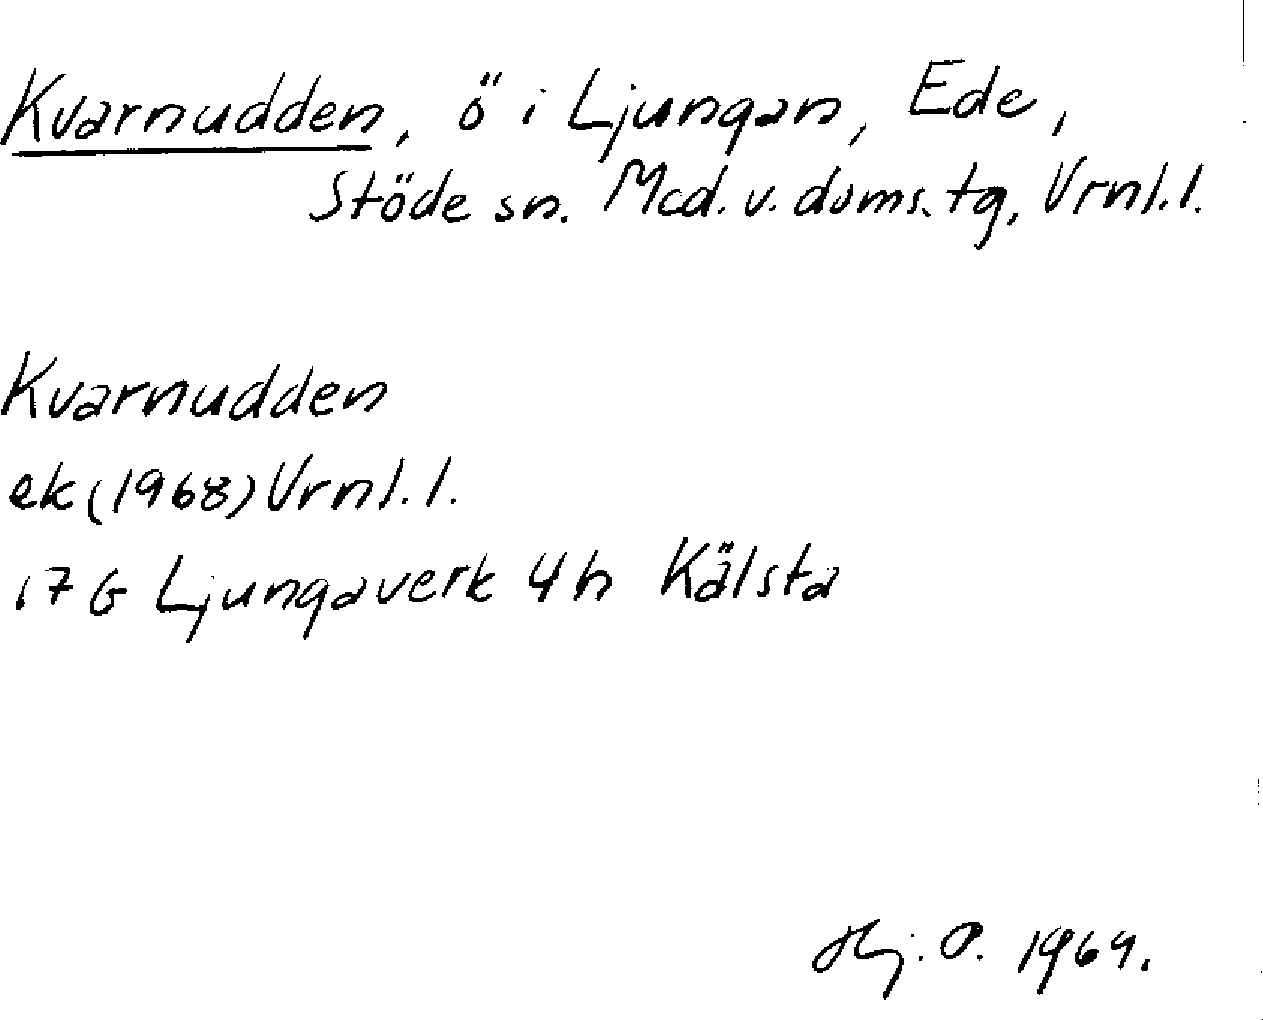 Kvarnudden, ö i Ljungan, Ede,
Stöde sn. Med. v. doms. tg, Vrnl. l.
Kvarnudden
ek (1968) Vrnl. l.
17 G Ljungaverk 4 h Kälsta
Hj. O. 1969.